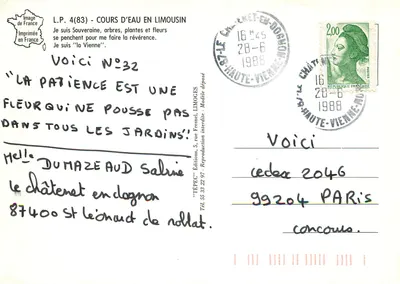 Image de France
Imprimée en France
L.P. 4(83) - COURS D'EAU EN LIMOUSIN
Je suis Souveraine, arbres, plantes et fleurs
se penchent pour me faire la révérence.
Je suis "la Vienne".
Voici N°32
"LA PATIENCE EST UNE
FLEUR QUI NE POUSSE PAS
DANS TOUS LES JARDINS"
Melle DUMAZEAUD Sabine
le châtenet en dognon
87400 St Léonard de noblat.
"YEPEC" Editions, 5, rue Ferussl, LIMOGES
Tél. 55 33 22 97 - Reproduction interdite - Modèle déposé
87-LE CHATENET-EN-DOGNON
16H45
28-6
1988
HAUTE-VIENNE
2,00
16
28-6
1988
HAUTE-VIENNE
VOICI
cedex 2046
99204 PARIS
concours.